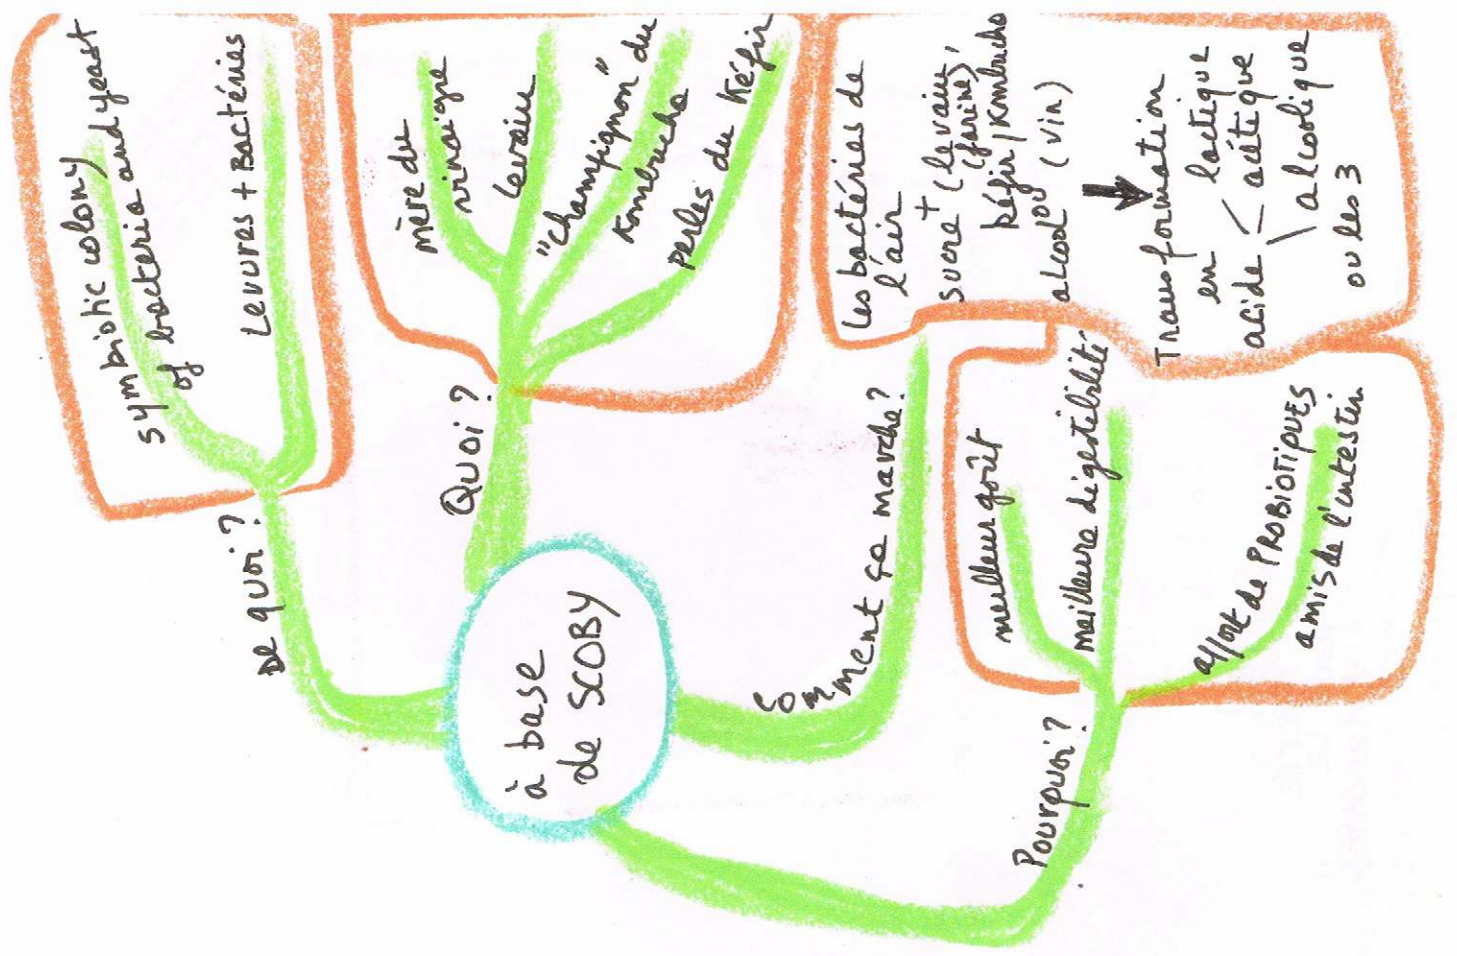 à base
de SCOBY
De quoi ?
symbiotic colony
of bacteria and yeast
Levures + Bactéries
Quoi ?
mère du
vinaigre
Levain
"champignon" du
Kombucha
perles du Kéfir
Comment ça marche ?
Les bactéries de
l'air
+
sucre (levain,
(farine),
kéfir/Kombucha
ou
alcool (vin)
Transformation
en lactique
acide < acétique
\ alcoolique
ou les 3
Pourquoi ?
meilleur goût
meilleure digestibilité
apport de PROBIOTIQUES
amis de l'intestin